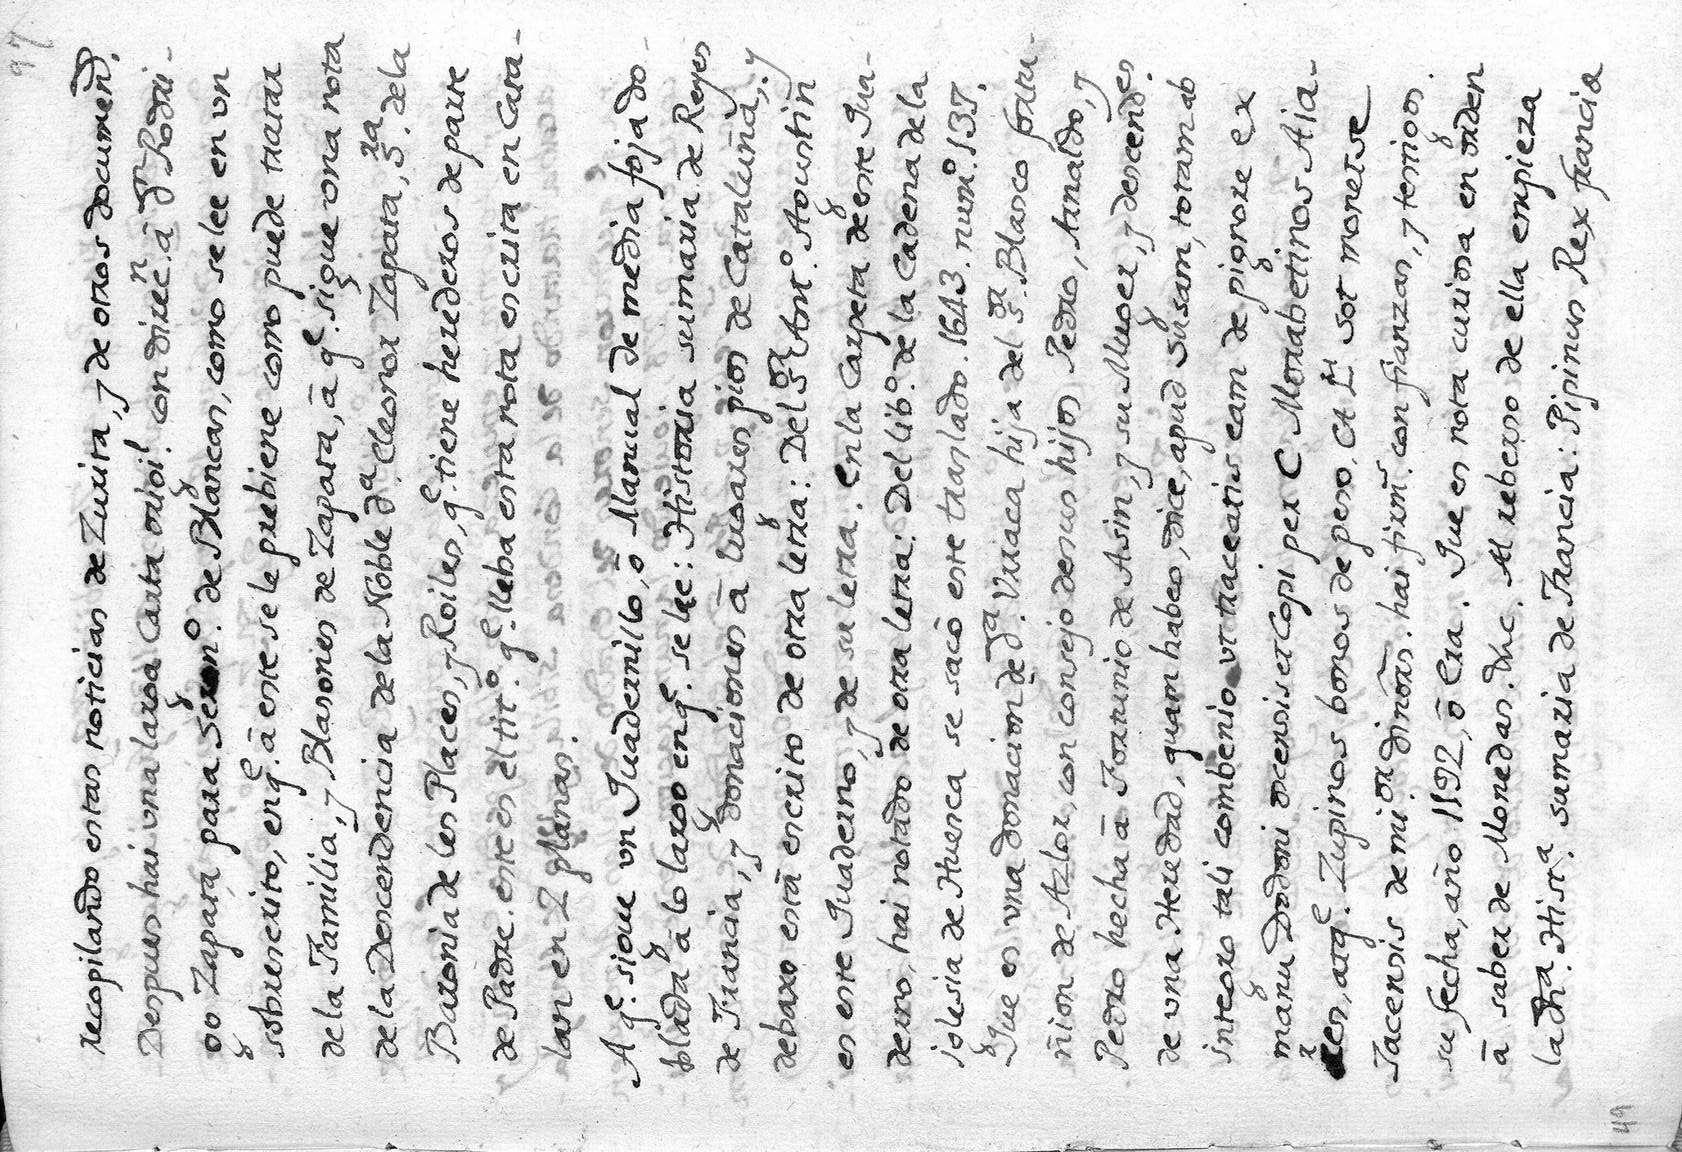 97
recopilando estas noticias de Zurita, y de otros documen̄s.
Despues hai una larga Carta origl. con direcn. â Dn. Rodri-
go Zapata para Geron.o de Blancas, como se lee en vn
sobrescrito, en q.e â este se le prebiene como puede tratar
de la Familia, y Blasones de Zapata, â q.e sigue otra nota
de la Descendencia de la Noble D.a Eleonor Zapata, S.ra de la
Baronia de les Places, y Roiles, q.e tiene herederos de parte
de Padre. este es el tit.o q.e lleba esta nota escrita en Cata-
lan en 2 planas.
A q.e sigue vn Quadernillo, ô Manual de media foja do-
blada â lo largo en q.e se lee: Historia sumaria de Reyes
de Francia, y donaciones â lugares pios de Cataluña, y
debaxo estâ escrito de otra letra: Del S.or Ant.o Agustin
es este Quaderno, y de su letra. En la Carpeta de este Qua-
derno, hai notado de otra letra: Del lib.o de la Cadena de la
iglesia de Huesca se sacô este translado. 1643. num.o 137.
Que es vna donacion de D.a Urraca hija del S.or Blasco fortu-
ñion de Azlor, con consejo de sus hijos Pedro, Arnaldo, y
Pedro hecha â Fortunio de Asin, y su Muger, y descendes.
de vna Heredad, quam habeo, dice, apud Susam, totam ab
integro tali combenio ut traceatis eam de pignore ex
manu Dodoni oscensis et Copi per C Morabetinos Aia-
res, atq.e Zupinos bonos de peso. CA Lri sot monetse
Jacensis de mi or dinors. hai firms. con fianzas, y testigos.
su fecha, año 1192, ô Era. Que es nota curiosa en orden
â saber de Monedas. &c. Al reberso de ella empieza
la dha. Hist.a sumaria de Francia: Pipinus Rex francia
49